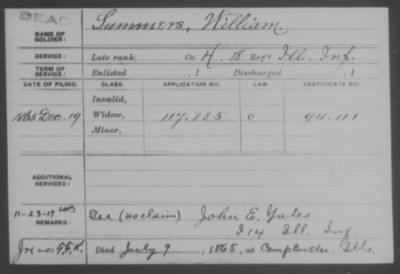 DEAD
NAME OF SOLDIER: Summers, William.
SERVICE: Late rank, Co. H, 18 Reg't Ill. Inf.
TERM OF SERVICE: Enlisted , 1 Discharged , 1
DATE OF FILING. CLASS. APPLICATION NO. LAW. CERTIFICATE NO.
Invalid,
1865 Dec. 19 Widow, 117.885 94.111
Minor,
ADDITIONAL SERVICES:
11-23-17
REMARKS: See (no claim) John E. Yates
I 14 Ill. Inf.
Died July 9, 1865, at Camp Butler, Ills.